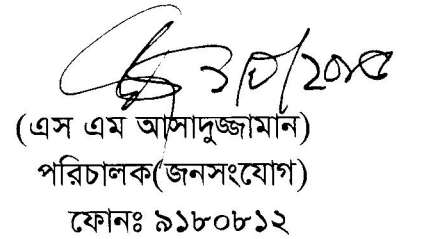 (এস এম আসাদুজ্জামান)
পরিচালক(জনসংযোগ)
ফোনঃ ৯১৮০৮১২